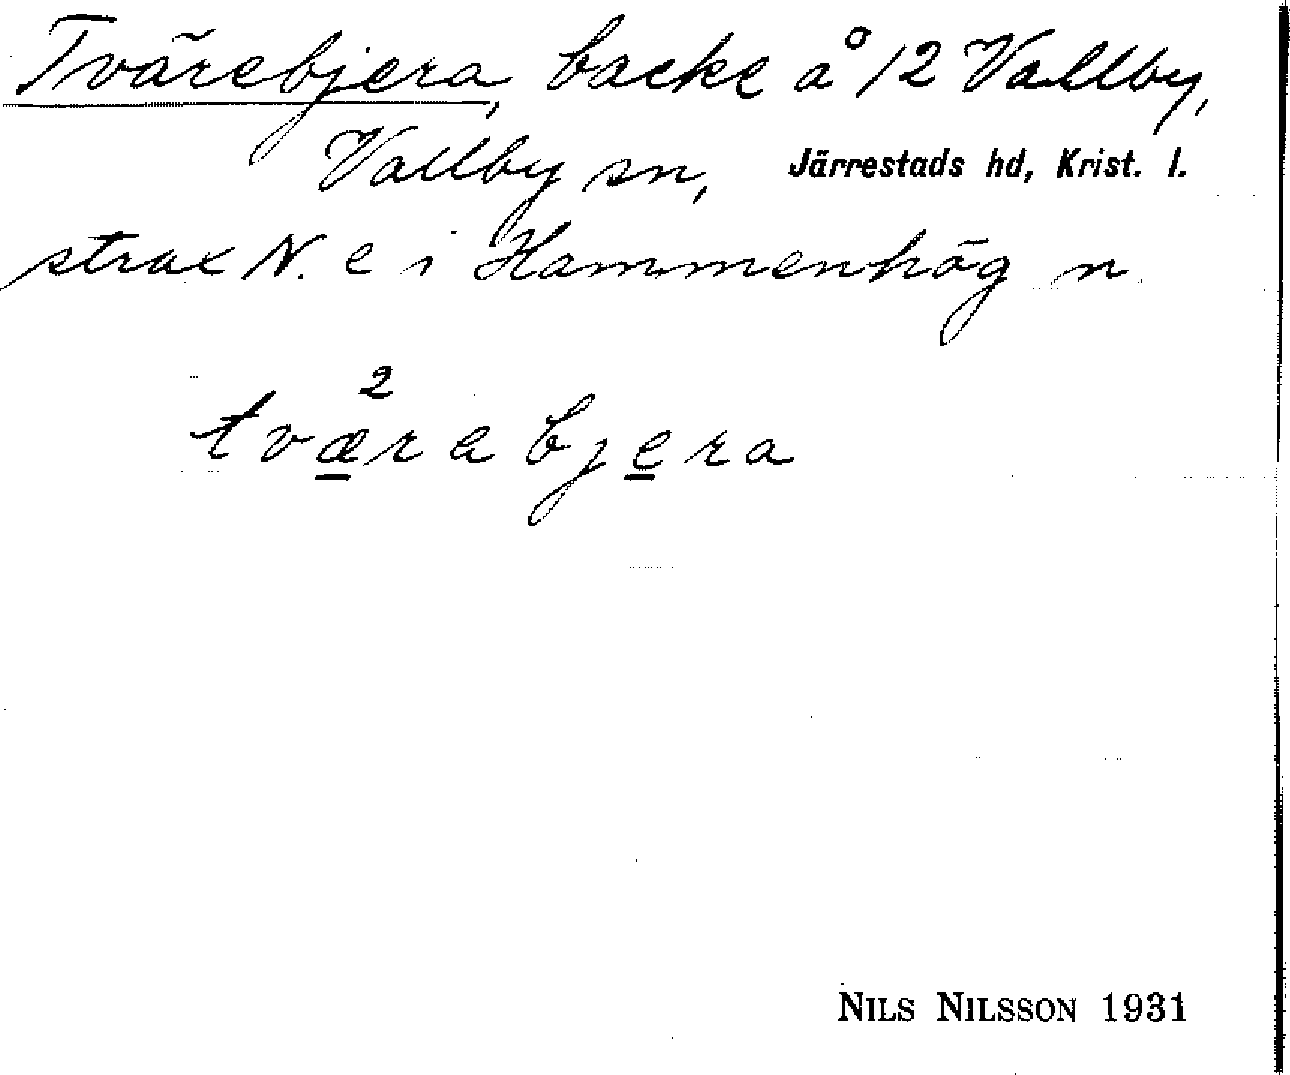 Tvärebjera, backe å 12 Vallby,
Vallby sn, Järrestads hd, Krist. l.
strax N. e i Hammenhög n
2
tværebjera
NILS NILSSON 1931